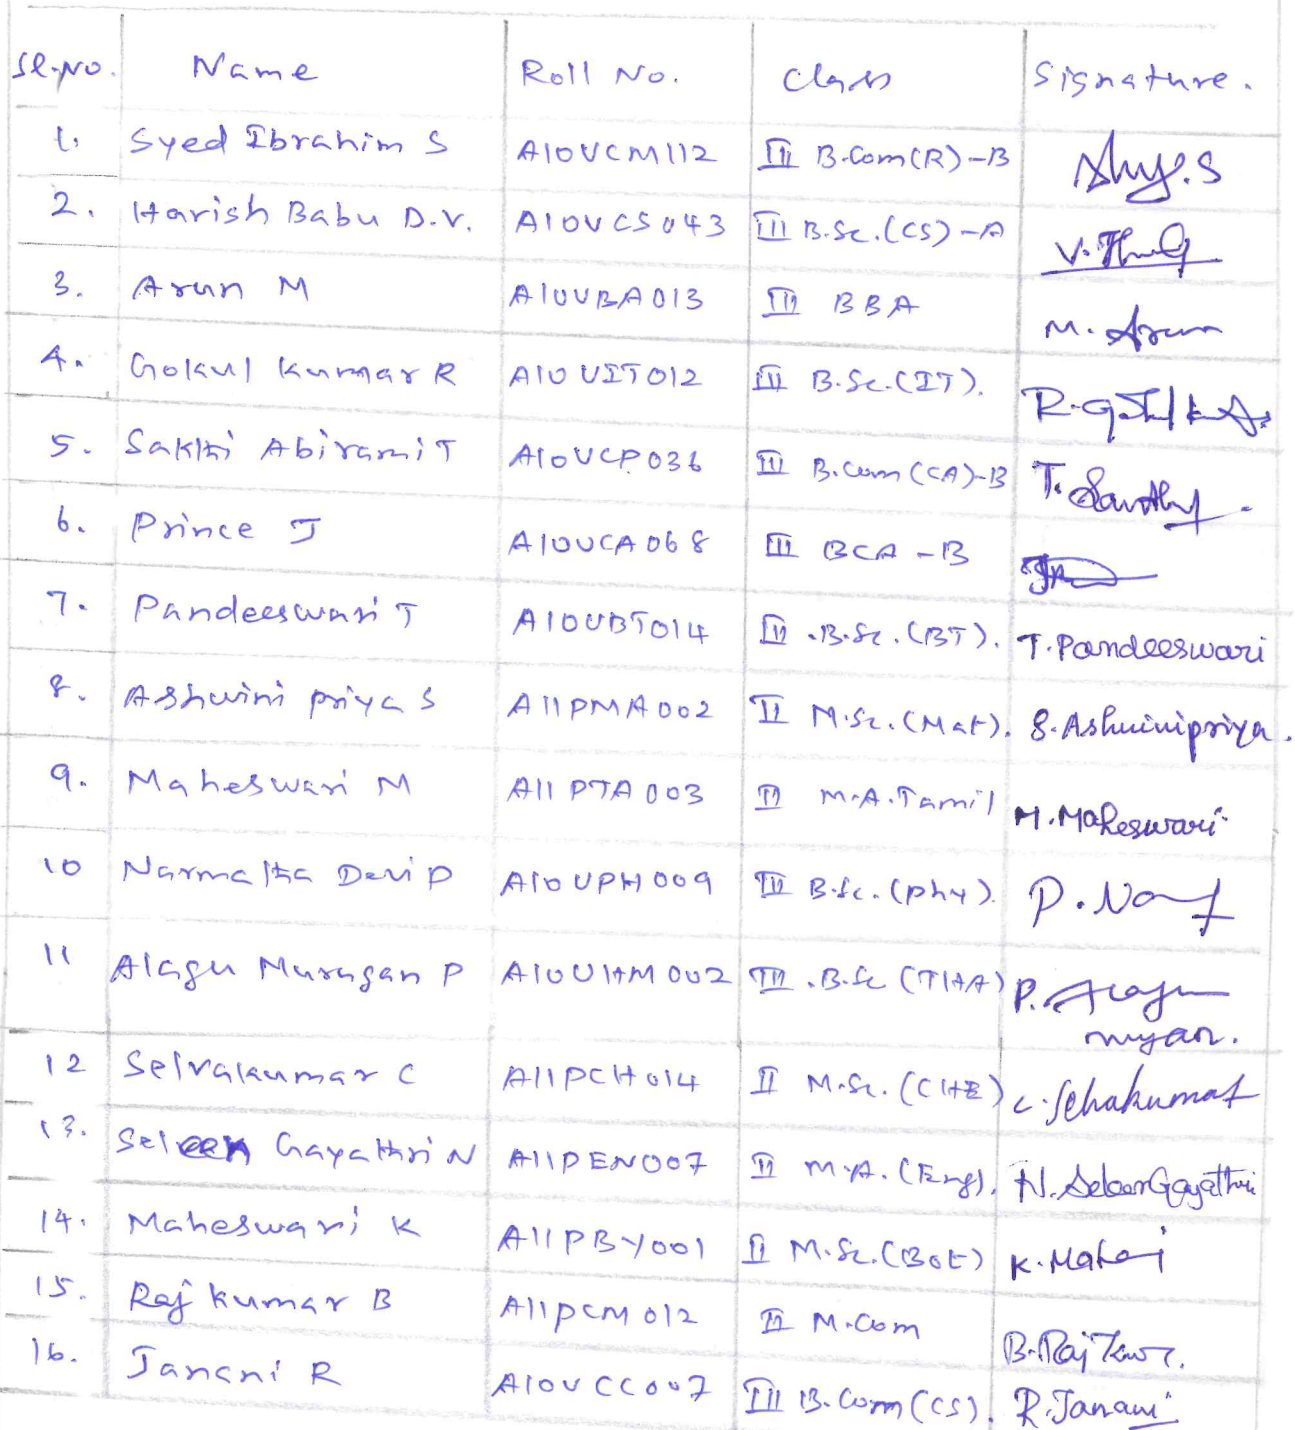 Sl.No. Name Roll No. Class Signature.
1. Syed Ibrahim S A10UCM112 III B.Com(R)-B
2. Harish Babu D.V. A10UCS043 III B.Sc.(CS)-A
3. Arun M A10UBA013 III BBA M. Arun
4. Gokul Kumar R A10UIT012 III B.Sc.(IT).
5. Sakthi Abirami T A10UCP036 III B.Com(CA)-B
6. Prince J A10UCA068 III BCA-B
7. Pandeeswari T A10UBT014 III B.Sc.(BT). T.Pandeeswari
8. Ashwini priya S A11PMA002 II M.Sc.(Mat). S.Ashwinipriya.
9. Maheswari M A11PTA003 II M.A.Tamil M.Maheswari
10 Narmatha Devi P A10UPH009 III B.Sc.(Phy).
11 Alagu Murugan P A10UHM002 III B.Sc (THA)
12 Selvakumar C A11PCH014 II M.Sc.(CHE) C.Selvakumar
13. Seleen Gayathri N A11PEN007 II M.A.(Eng). N.SeleenGayathri
14. Maheswari K A11PBY001 II M.Sc.(Bot)
15. Raj kumar B A11PCM012 II M.Com
16. Janani R A10UCC007 III B.Com(CS). R.Janani